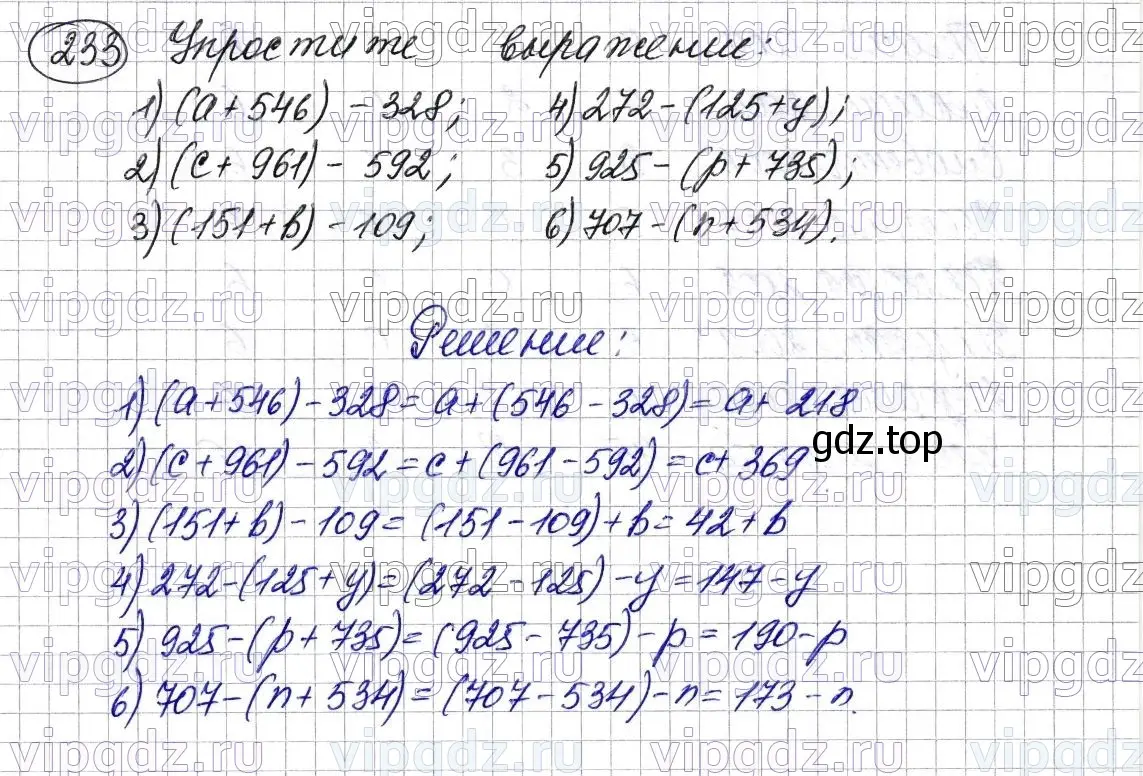 233 Упростите выражение:
1) (a + 546) - 328; 4) 272 - (125 + y);
2) (c + 961) - 592; 5) 925 - (p + 735);
3) (151 + b) - 109; 6) 707 - (n + 534).
Решение:
1) (a + 546) - 328 = a + (546 - 328) = a + 218
gdz.top
2) (c + 961) - 592 = c + (961 - 592) = c + 369
3) (151 + b) - 109 = (151 - 109) + b = 42 + b
4) 272 - (125 + y) = (272 - 125) - y = 147 - y
5) 925 - (p + 735) = (925 - 735) - p = 190 - p
6) 707 - (n + 534) = (707 - 534) - n = 173 - n.
vipgdz.ru